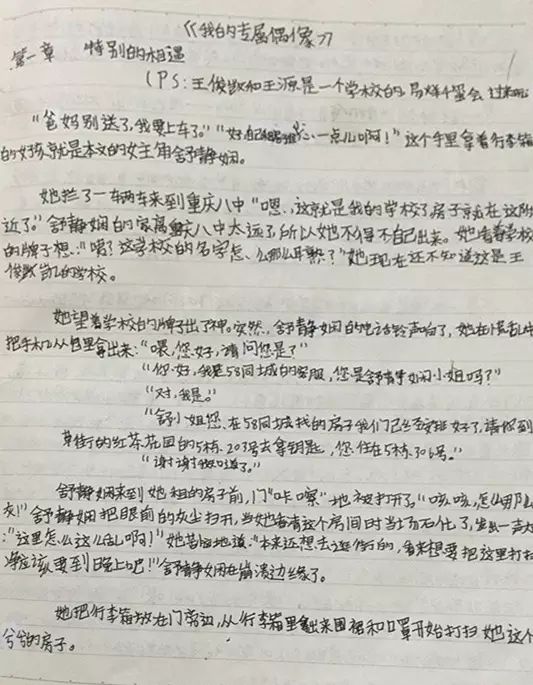 《我的专属偶像》
第一章 特别的相遇
（PS：王俊凯和王源是一个学校的，易烊千玺会过来玩
“爸妈别送了，我要上车了。”“好，自己小心一点儿啊！”这个手里拿着行李箱
的女孩就是本文的女主角舒静娴。
她拦了一辆车来到重庆八中“嗯、这就是我的学校了房子就在这附
近了。”舒静娴的家离重庆八中太远了所以她不得不自己出来。她看着学校
的牌子想：“嗯？这学校的名字怎、么那么耳熟？”她现在还不知道这是王
俊凯的学校。
她望着学校的牌子出了神。突然，舒静娴的电话铃声响了，她在慌乱中
把手机从包里拿出来：“喂，您好，请问您是？”
“您好，我是58同城的客服，您是舒静娴小姐吗？”
“对，我是。”
“舒小姐您、在58同城找的房子我们已经安排好了，请您到
草街的红茶花园的5栋203号去拿钥匙，您住在5栋306号。”
“谢谢我知道了。”
舒静娴来到她租的房子前，门“咔嚓”地被打开了。“咳咳，怎么那么
灰！”舒静娴把眼前的灰尘扫开，当她看有这个房间时当场石化了，发出一声大
：“这里怎么这么乱啊！”她苦恼地道：“本来还想去逛街的，看来想要把这里打扫
净应该要到晚上吧！”舒静娴在崩溃边缘了。
她把行李箱放在门旁边，从行李箱里拿出来围裙和口罩开始打扫她这个
兮兮的房子。